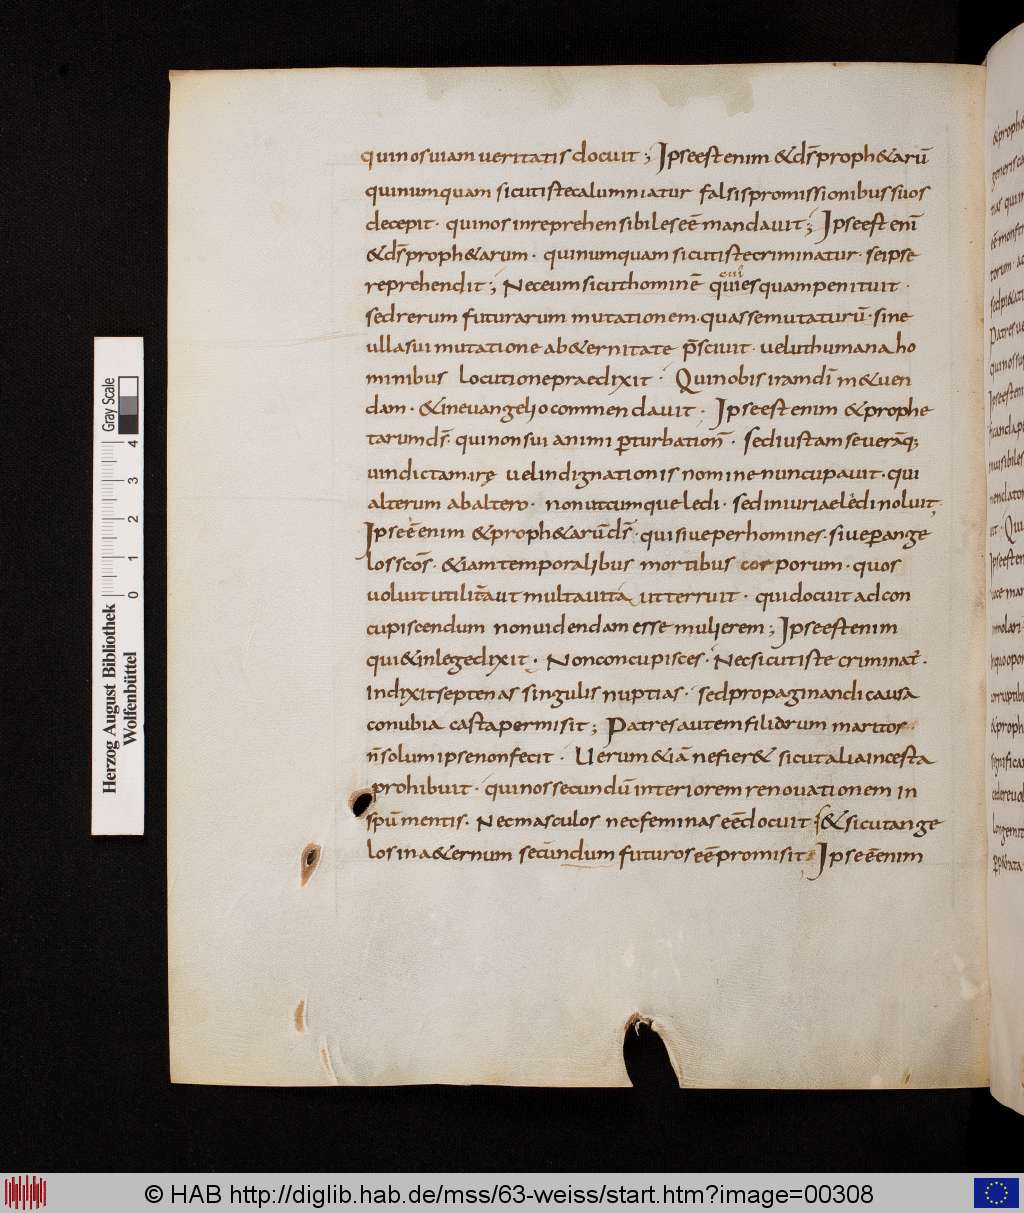 qui nos viam veritatis docuit ; Ipse est enim & ds̄ proph&arū
qui numquam sicut iste calumniatur falsis promissionibus suos
decepit · qui nos inreprehensibiles eē mandavit ; Ipse est enī
& ds̄ proph&arum · qui numquam sicut iste criminatur · se ipse
reprehendit ; Nec eum sicut hominē quies quam penituit ·
sed rerum futurarum mutationem · quas se mutaturū · sine
ulla sui mutatione ab &ernitate p̄scivit · velut humana ho
minibus locutione praedixit · Qui nobis iram dī m&uen
dam · & in evangelio commendavit · Ipse est enim & prophe
tarum ds̄ · qui non sui animi p̱turbationē · sed iustam severāq;
vindictam irę vel indignationis nomine nuncupavit · qui
alterum ab altero · non utcumque ledi · sed iniuriae lędi noluit ;
Ipse ē enim & proph&arū ds̄ · qui sive per homines · sive p̱ ange
los scōs · &iam temporalibus mortibus corporum · quos
voluit utilit̄ aut multavit aut terruit · qui docuit ad con
cupiscendum non videndam esse mulierem ; Ipse est enim
qui & in lege dixit · Non concupisces · Nec sicut iste criminat̄ ·
indixit septenas singulis nuptias · sed propaginandi causa
conubia casta permisit ; Patres autem filiorum maritos
n̄ solum ipse non fecit · Uerum &iā ne fier& sicut alia incesta
prohibuit · qui nos secundū interiorem renovationem in
spū mentis · Nec masculos nec feminas eē docuit / & sicut ange
los in a&ernum secundum futuros eē promisit ; Ipse ē enim
Herzog August Bibliothek
Wolfenbüttel
Gray Scale
0 1 2 3 4
© HAB http://diglib.hab.de/mss/63-weiss/start.htm?image=00308